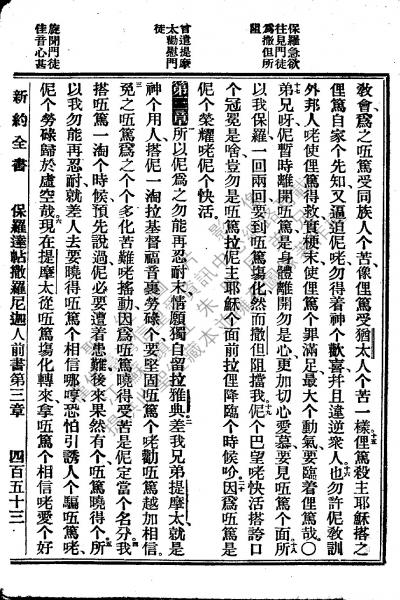 保羅急欲
往見門徒
爲撒但所
阻
曾遣提摩
太勸慰門
徒
旋聞門徒
佳音心甚
敎會爲之𠲎篤受同族人个苦像俚篤受猶太人个苦一樣俚篤殺主耶穌搭之
俚篤自家个先知又逼迫伲咾勿得着神个歡喜幷且違逆衆人也勿許伲敎訓
外邦人咾使俚篤得救實梗末使俚篤个罪滿足最大个動氣要臨着俚篤哉〇
弟兄呀伲暫時離開𠲎篤是身體離開勿是心更加切心愛慕要見𠲎篤个面所
以我保羅一回兩回要到𠲎篤塲化然而撒但阻擋我伲个巴望咾快活搭誇口
个冠冕是啥豈勿是𠲎篤拉伲主耶穌个面前拉俚降臨个時候吤因爲𠲎篤是
伲个榮耀咾伲个快活
第三章所以伲爲之勿能再忍耐末情願獨自留拉雅典差我兄弟提摩太就是
神个用人搭伲一淘拉基督福音裏勞碌个要堅固𠲎篤个咾勸𠲎篤越加相信
免之𠲎篤爲之个个多化苦難咾搖動因爲𠲎篤曉得受苦是伲定當个名分我
搭𠲎篤一淘个時候預先說過伲必要遭着患難後來果然有个𠲎篤曉得个所
以我勿能再忍耐就差人去要曉得𠲎篤个相信哪哼恐怕引誘人个驅𠲎篤咾
伲个勞碌歸於虛空哉現在提摩太從𠲎篤塲化轉來拿𠲎篤个相信咾愛个好
新約全書 保羅達帖撒羅尼迦人前書第三章 四百五十三